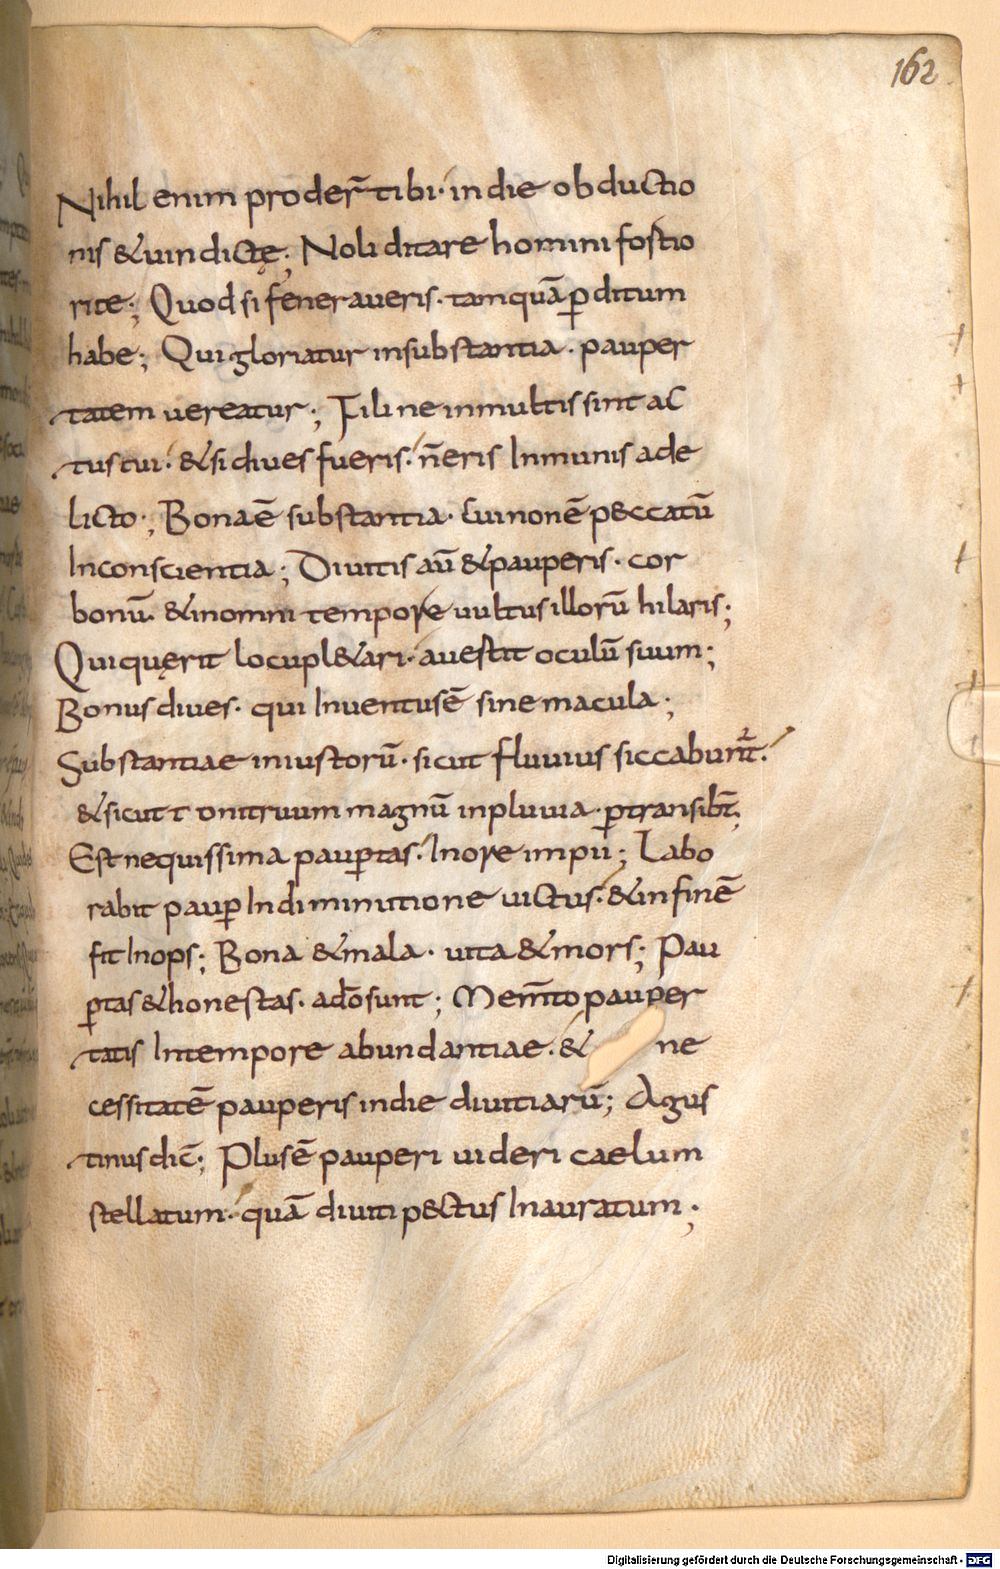 162
Nihil enim proder̄ tibi · in die obductio
nis & uindictę ; Noli ditare homini fostio
rite ; Quod si feneraueris · tamquā p̱ditum
habe ; Qui gloriatur insubstantia · pauper
tatem uereatur ; Fili ne inmultis sint ac
tus tui · & si diues fueris · n̄ eris Inmunis ade
licto ; Bona ē substantia · cui non ē p&ccatū
Inconscientia ; Diuitis aū & pauperis · cor
bonū · & inomni tempore uultus illorū hilaris ;
Qui quęrit locupl&ari · auestit oculū suum ;
Bonus diues · qui Inuentus ē sine macula ;
Substantiae iniustorū · sicut fluuius siccabunt̄ ·
& sicut tonitruum magnū inpluuia · p̱transibt̄ ;
Est nequissima paup̱tas · Inore impii ; Labo
rabit paup̱ Indiminutione uictus · & in finē
fit Inops ; Bona & mala · uita & mors ; Pau
p̱tas & honestas · ado sunt ; Mem̄to pauper
tatis Intempore abundantiae · & ne
cessitatē pauperis indie diuitiarū ; Agus
tinus dic̄ ; Plus ē pauperi uideri caelum
stellatum · quā diuiti p&ctus Inauratum ;
Digitalisierung gefördert durch die Deutsche Forschungsgemeinschaft - DFG